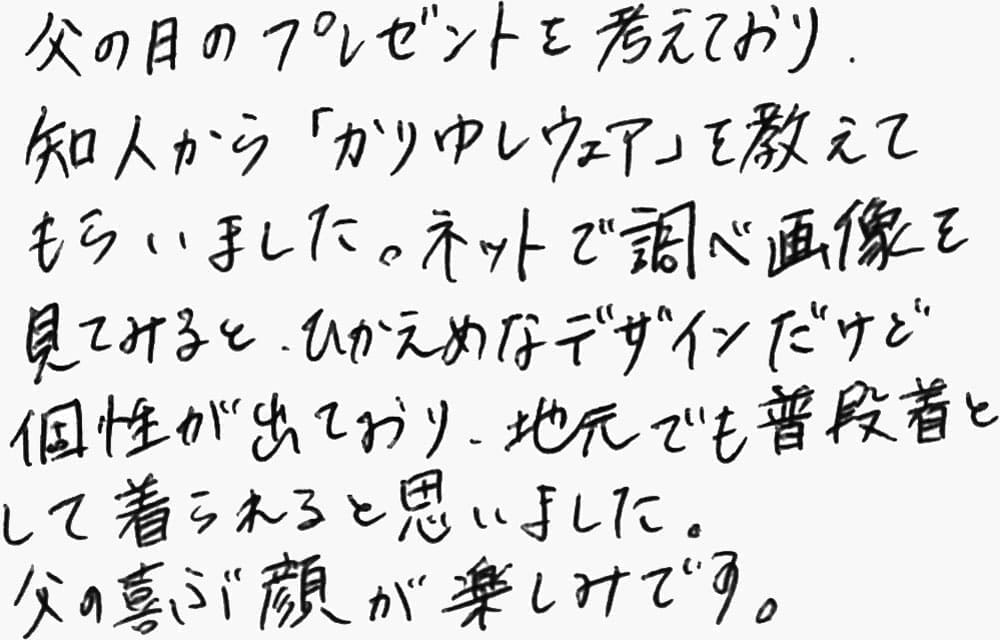 父の日のプレゼントを考えており、
知人から「かりゆしウェア」を教えて
もらいました。ネットで調べ画像を
見てみると、ひかえめなデザインだけど
個性が出ており、地元でも普段着と
して着られると思いました。
父の喜ぶ顔が楽しみです。